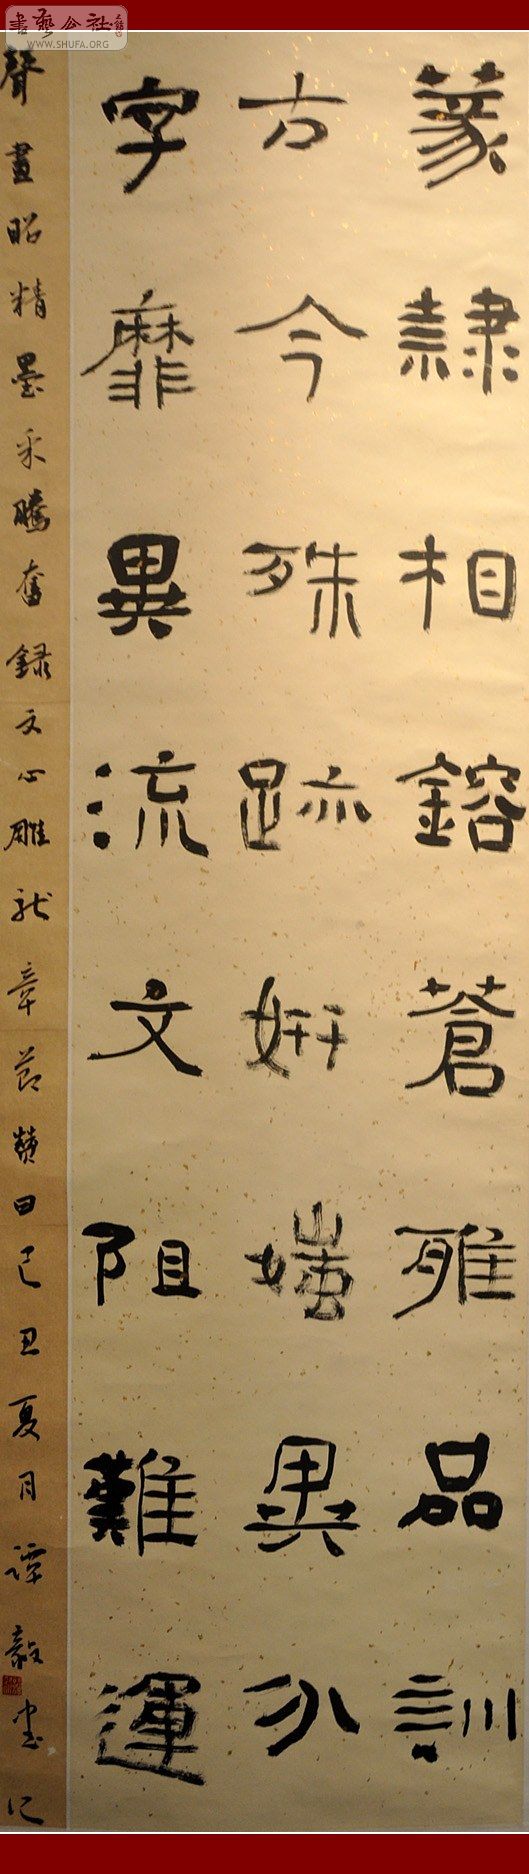 書藝公社
WWW.SHUFA.ORG
篆隸相鎔蒼雅品訓
古今殊跡妍媸異分
字靡異流文阻難運
聲畫昭精墨采騰奮錄文心雕龍章節贊曰己丑夏月譚毅書記